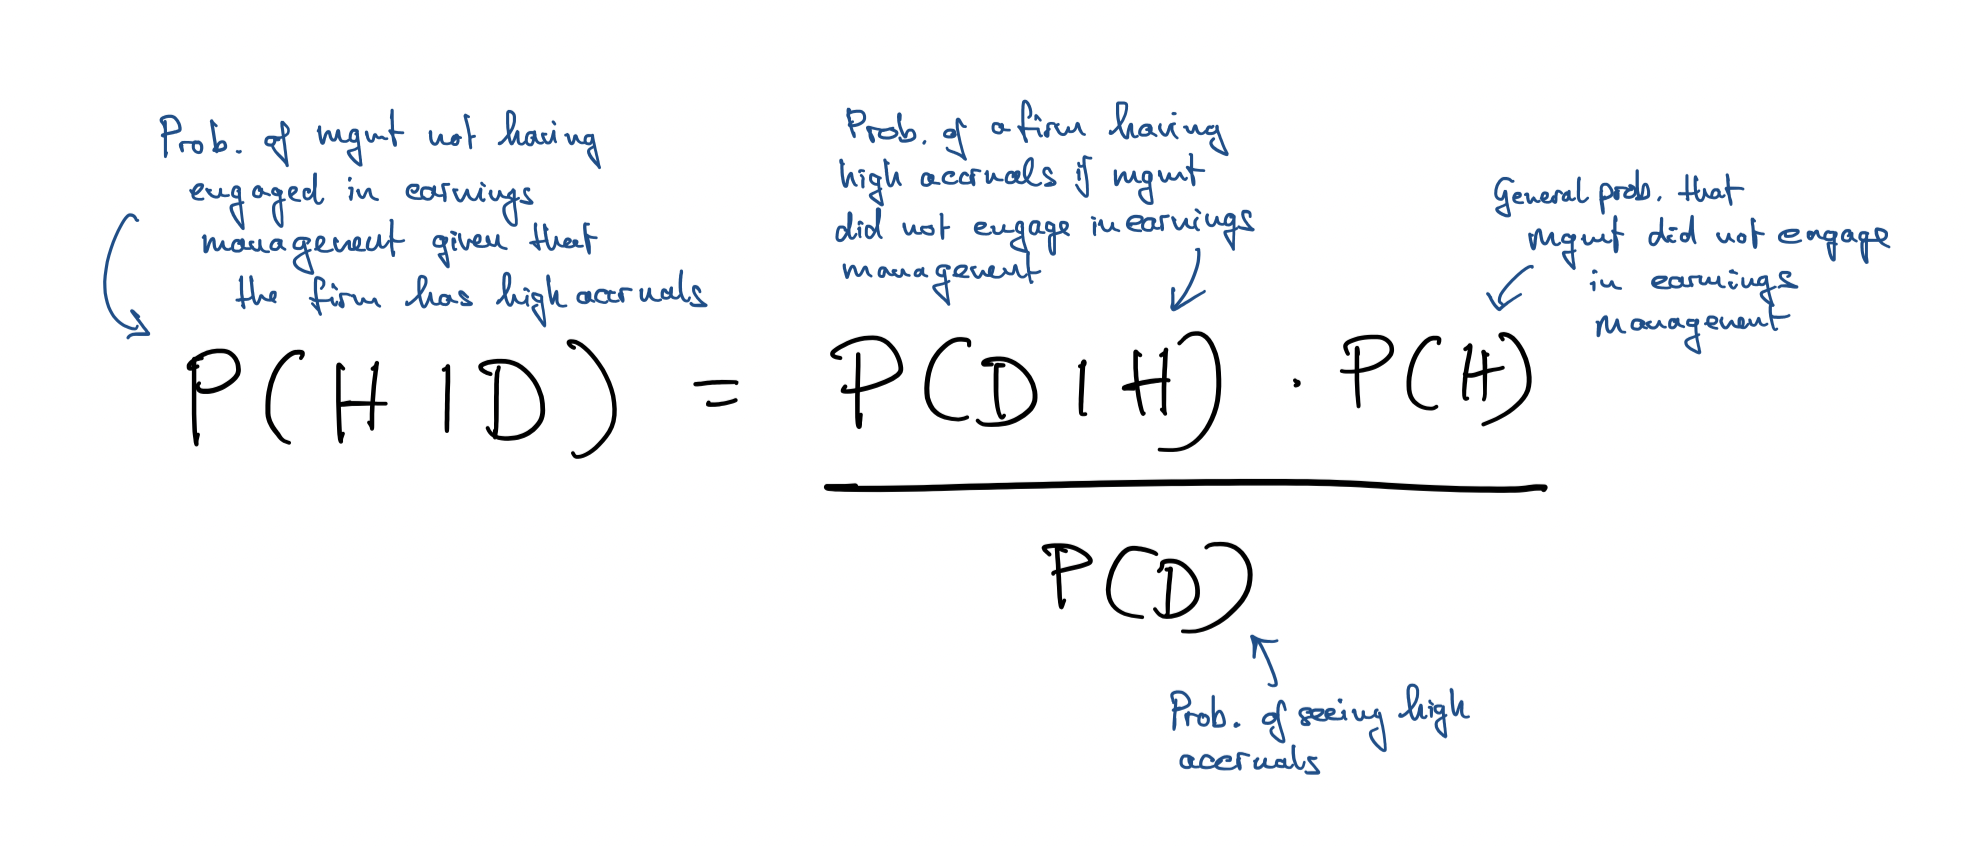 Prob. of mgmt not having
engaged in earnings
management given that
the firm has high accruals
Prob. of a firm having
high accruals if mgmt
did not engage in earnings
management
General prob. that
mgmt did not engage
in earnings
management
P(H|D) = P(D|H) · P(H)
P(D)
Prob. of seeing high
accruals